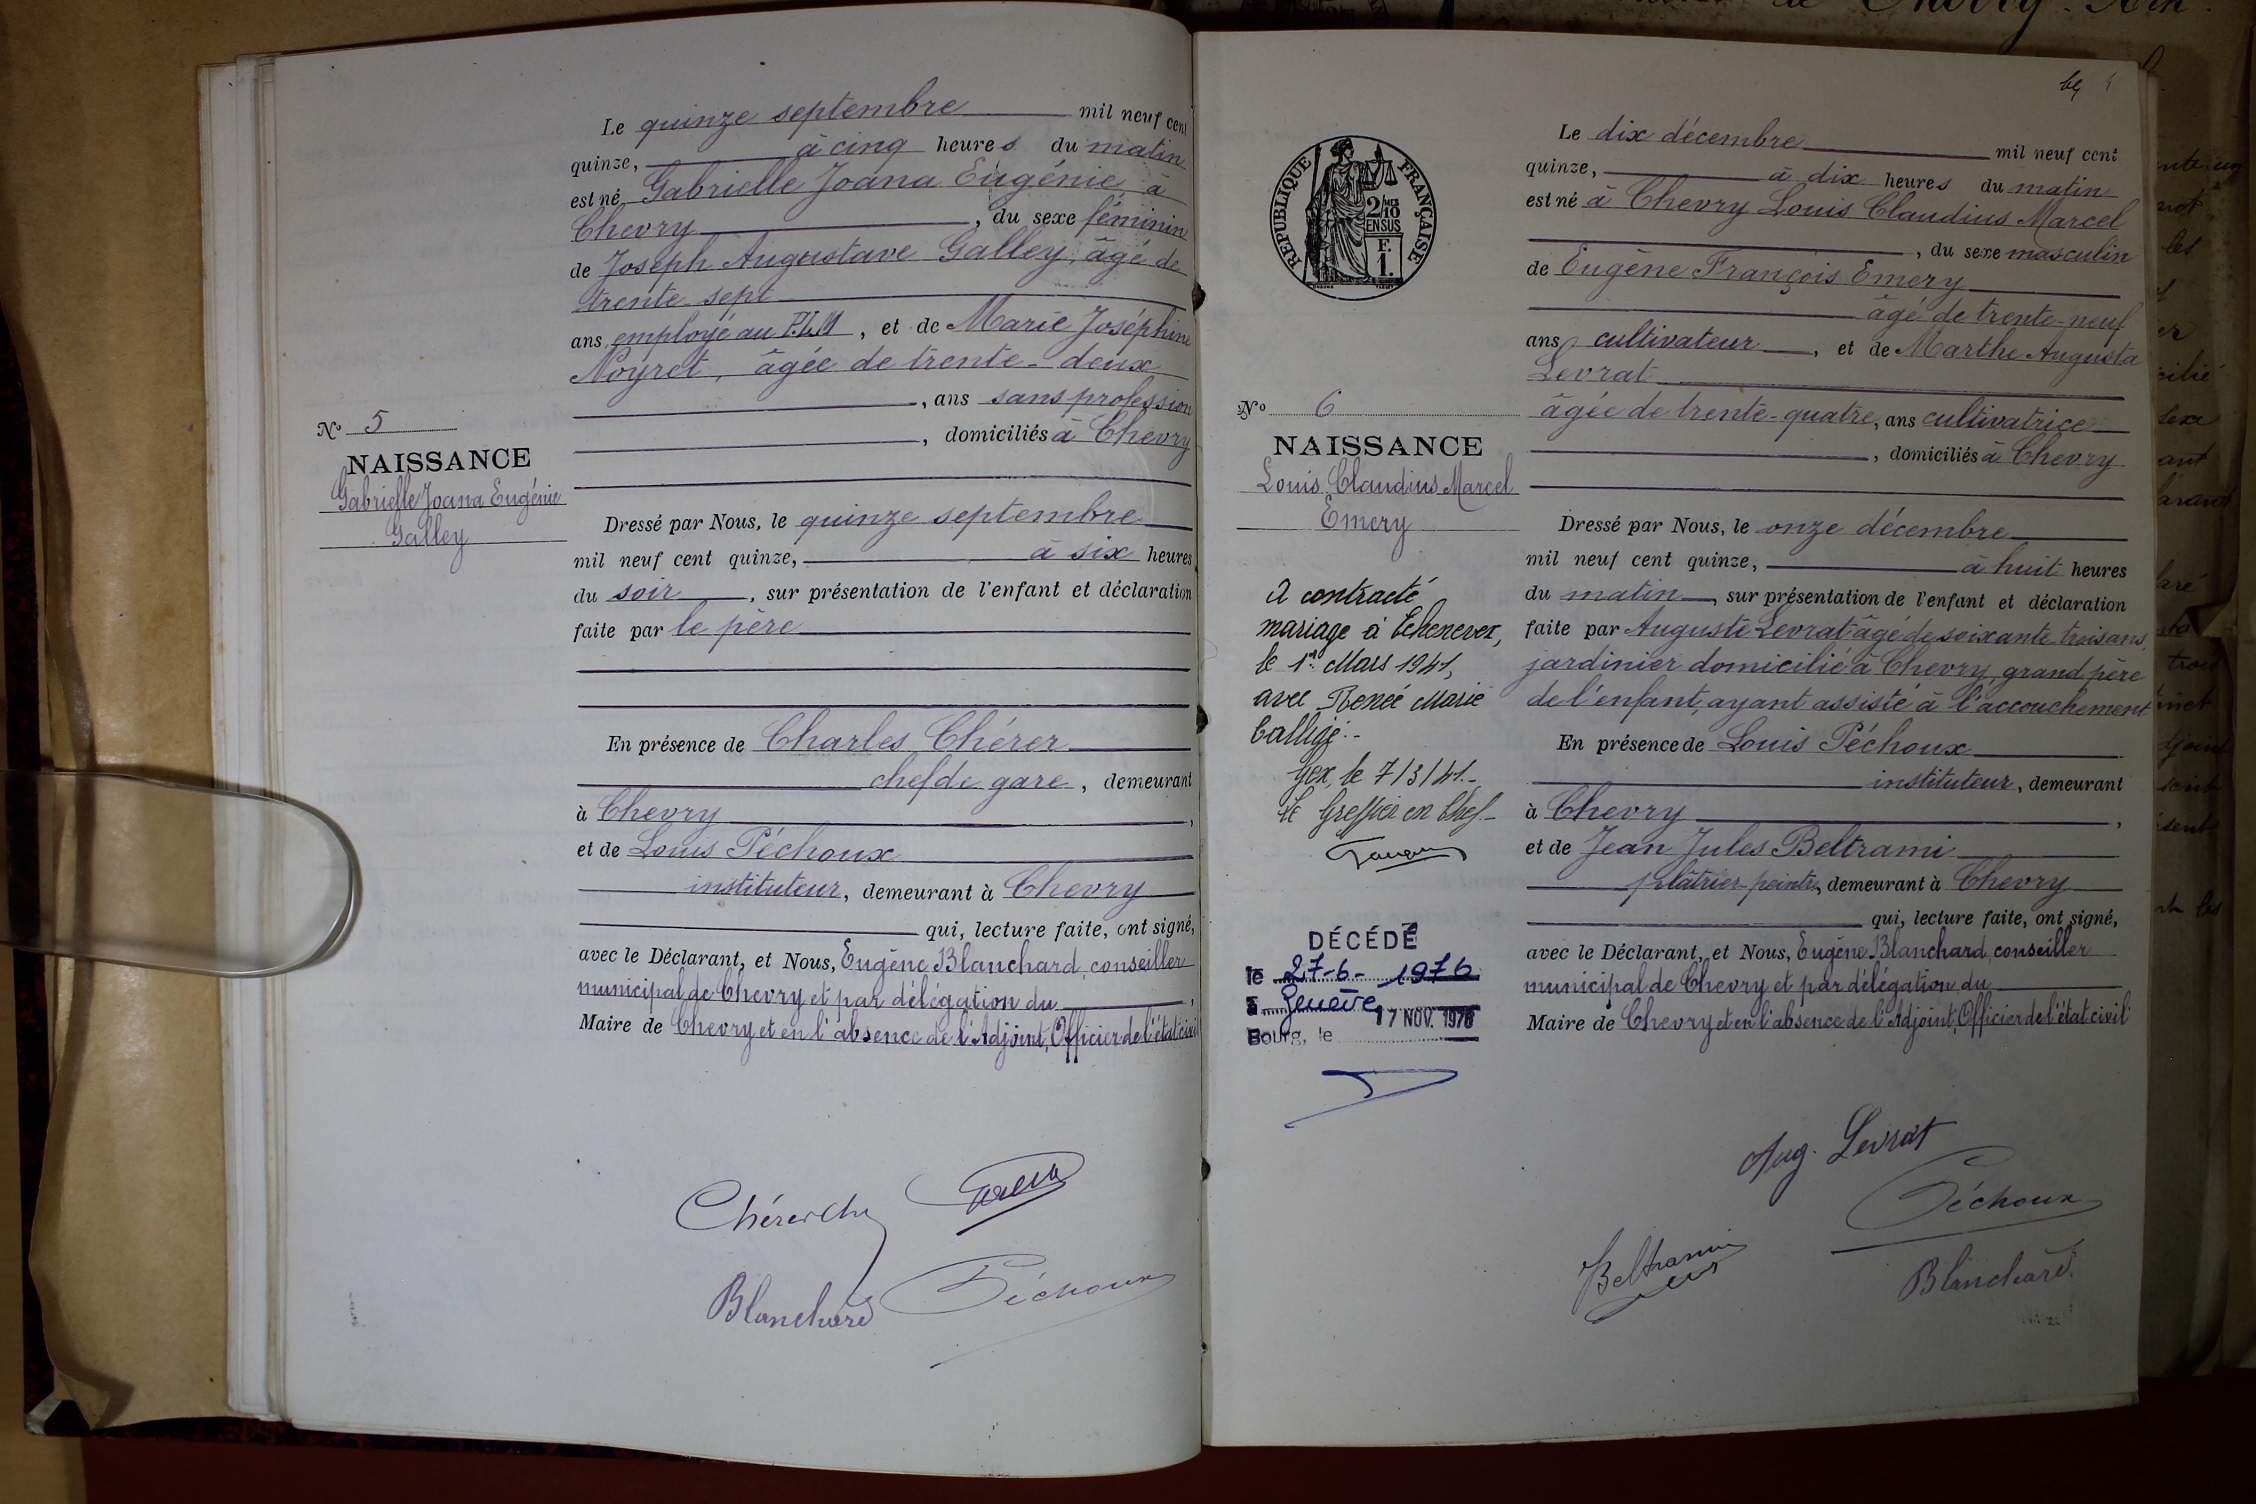 Le quinze septembre mil neuf cent
quinze, à cinq heures du matin
est né Gabrielle Joana Eugénie à
Chevry, du sexe féminin
de Joseph Augustave Galley, âgé de
trente sept
ans, employé au P.L.M, et de Marie Joséphine
Noyret, âgée de trente-deux
, ans sans profession
, domiciliés à Chevry
N° 5
NAISSANCE
Gabrielle Joana Eugénie
Galley
Dressé par Nous, le quinze septembre
mil neuf cent quinze, à six heures
du soir, sur présentation de l'enfant et déclaration
faite par le père
En présence de Charles Chérer
chef de gare, demeurant
à Chevry,
et de Louis Péchoux
instituteur, demeurant à Chevry
qui, lecture faite, ont signé,
avec le Déclarant, et Nous, Eugène Blanchard, conseiller
municipal de Chevry et par délégation du,
Maire de Chevry et en l'absence de l'Adjoint, Officier de l'état civil
Blanchard
Péchoux
Le dix décembre mil neuf cent
quinze, à dix heures du matin
est né à Chevry Louis Claudius Marcel
, du sexe masculin
de Eugène François Emery
âgé de trente-neuf
ans cultivateur, et de Marthe Augusta
Levrat
âgée de trente-quatre, ans cultivatrice
, domiciliés à Chevry
REPUBLIQUE FRANÇAISE
2/10
EN SUS
F.
1.
N° 6
NAISSANCE
Louis Claudius Marcel
Emery
A contracté
mariage à Echenevex,
le 1er Mars 1941,
avec Renée Marie
Gex, le 7/3/41.-
Le Greffier en Chef-
DÉCÉDÉ
le 27-6-1976
à Genève
Bourg, le 17 NOV. 1976
Dressé par Nous, le onze décembre
mil neuf cent quinze, à huit heures
du matin, sur présentation de l'enfant et déclaration
faite par Auguste Levrat âgé de soixante trois ans,
jardinier domicilié à Chevry, grand père
de l'enfant, ayant assisté à l'accouchement
En présence de Louis Péchoux
instituteur, demeurant
à Chevry,
et de Jean Jules Beltrami
plâtrier-peintre, demeurant à Chevry
qui, lecture faite, ont signé,
avec le Déclarant, et Nous, Eugène Blanchard conseiller
municipal de Chevry et par délégation du
Maire de Chevry et en l'absence de l'Adjoint, Officier de l'état civil
Aug. Levrat
Péchoux
Beltrami
Blanchard